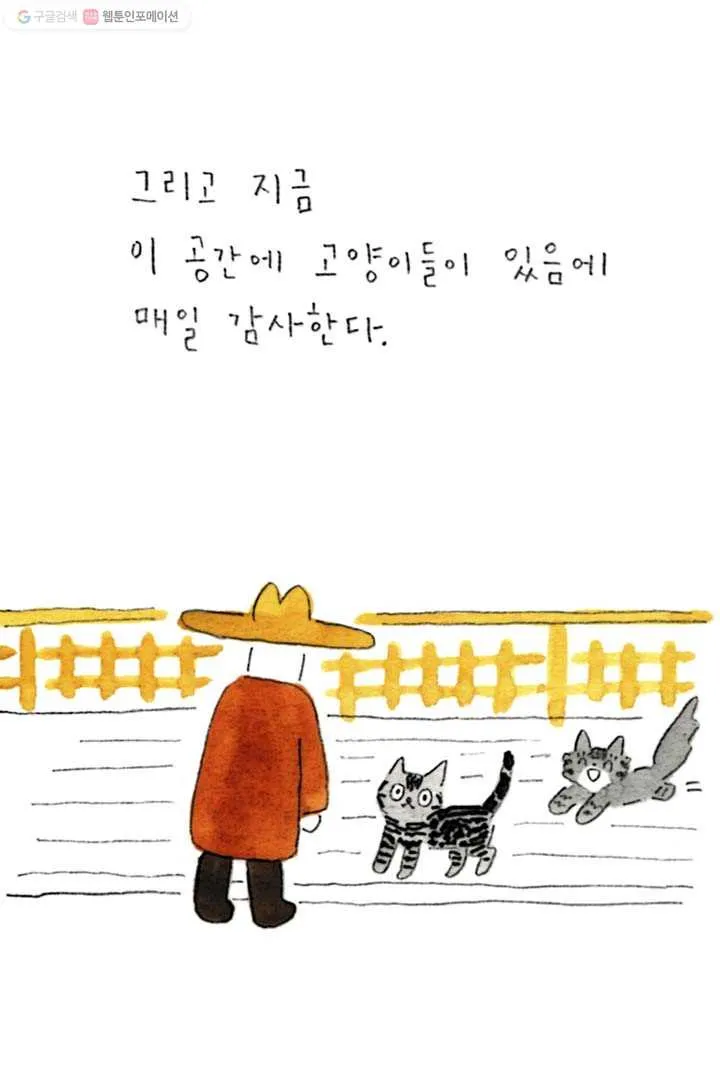 구글검색 웹툰인포메이션
그리고 지금
이 공간에 고양이들이 있음에
매일 감사한다.